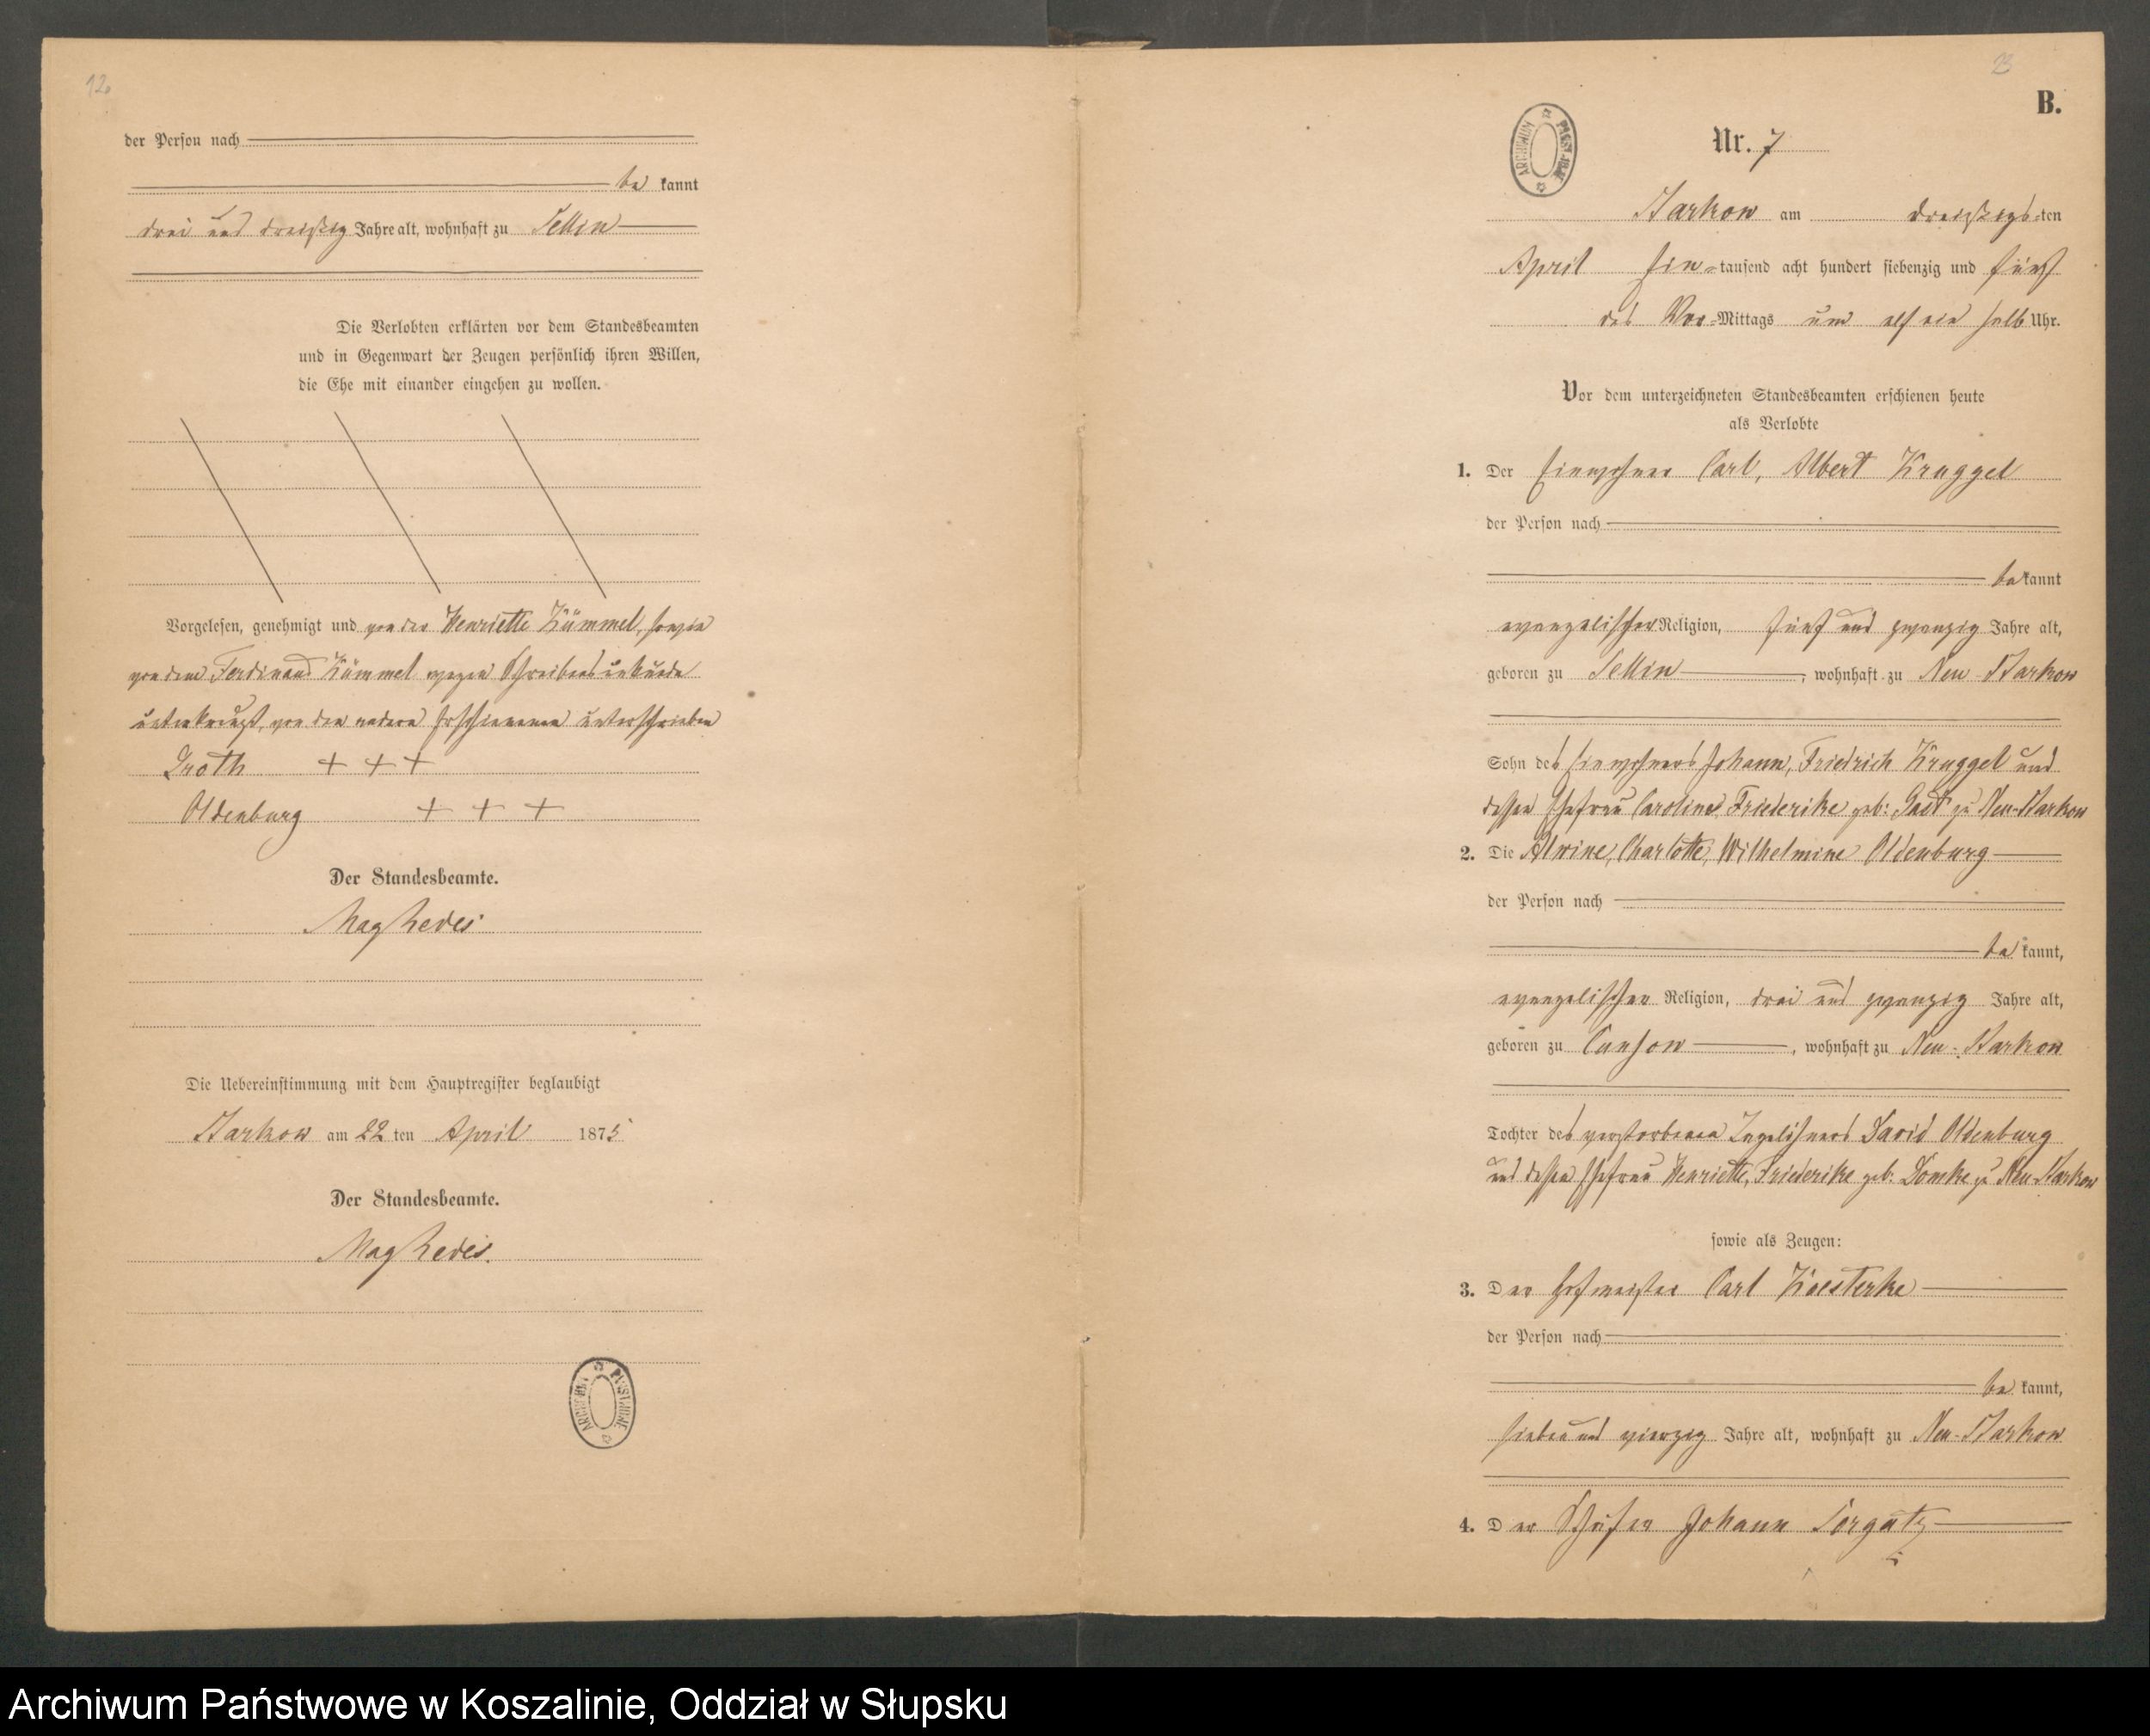 12
der Person nach
be kannt
drei und dreißig Jahre alt, wohnhaft zu Sellin
Die Verlobten erklärten vor dem Standesbeamten
und in Gegenwart der Zeugen persönlich ihren Willen,
die Ehe mit einander eingehen zu wollen.
Vorgelesen, genehmigt und von der Henriette Kümmel, sowie
von dem Ferdinand Kümmel wegen Schreibensunkunde
unterkreuzt, von den andern Erschienenen unterschrieben
Groth + + +
Oldenburg + + +
Der Standesbeamte.
Die Uebereinstimmung mit dem Hauptregister beglaubigt
Starkow am 22 ten April 1875
Der Standesbeamte.
ARCHIWUM PAŃSTWOWE
23
B.
ARCHIWUM PAŃSTWOWE
Nr. 7
Starkow am dreißigs ten
April Ein tausend acht hundert siebenzig und fünf
des Vor-Mittags um elf ein halb Uhr.
Vor dem unterzeichneten Standesbeamten erschienen heute
als Verlobte
1. Der Einwohner Carl, Albert Kruggel
der Person nach
be kannt
evangelischer Religion, fünf und zwanzig Jahre alt,
geboren zu Sellin, wohnhaft zu Neu-Starkow
Sohn des Einwohners Johann, Friedrich Kruggel und
dessen Ehefrau Caroline, Friederike geb: Gast zu Neu-Starkow
2. Die Alwine, Charlotte, Wilhelmine Oldenburg
der Person nach
be kannt,
evangelischer Religion, drei und zwanzig Jahre alt,
geboren zu Cunsow, wohnhaft zu Neu-Starkow
Tochter des verstorbenen Tagelöhners David Oldenburg
und dessen Ehefrau Henriette, Friederike geb: Domke zu Neu-Starkow
sowie als Zeugen:
3. Der Hofmeister Carl Koesterke
der Person nach
be kannt,
sieben und vierzig Jahre alt, wohnhaft zu Neu-Starkow
4. Der Schäfer Johann Torgatz
Archiwum Państwowe w Koszalinie, Oddział w Słupsku